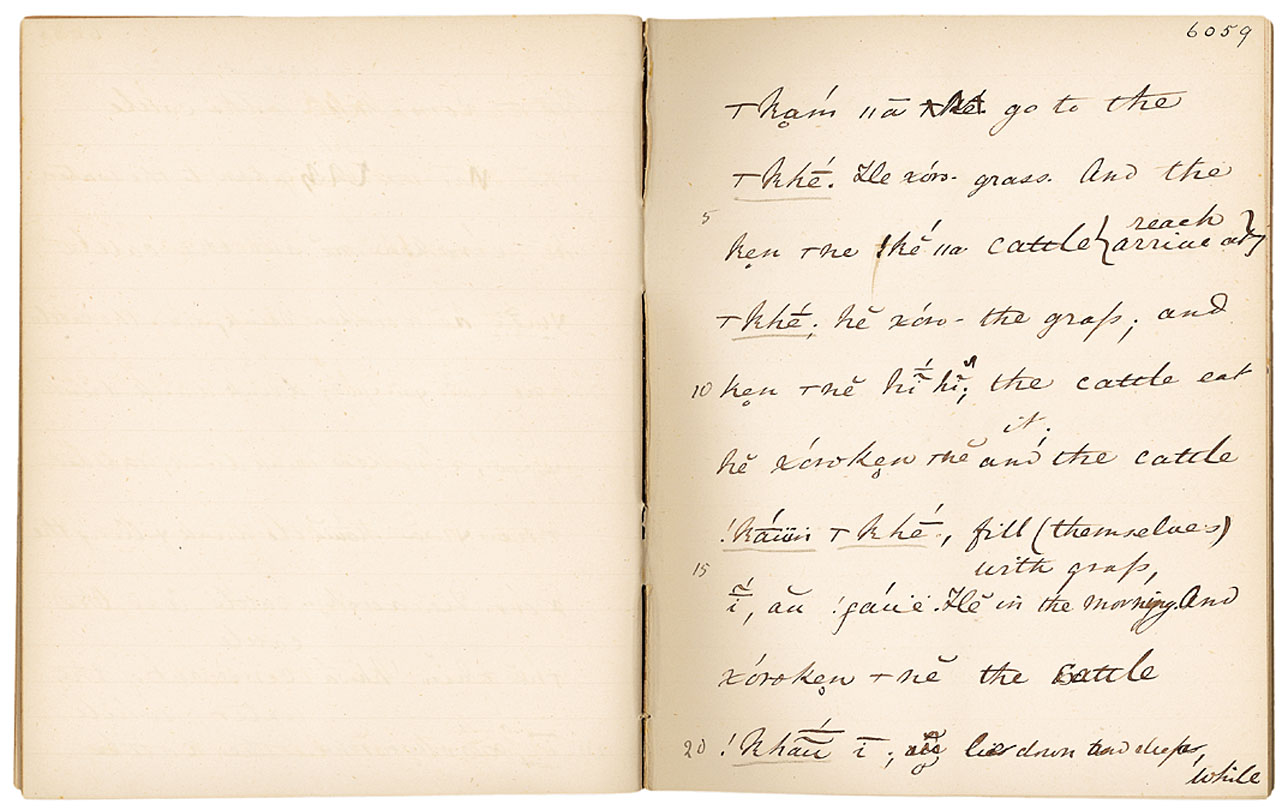 6059
⊤kạḿ ııā go to the
⊤khé. He xóro- grass. And the
5
kẹn ⊤ne !ké ııa cattle {reach
arrive at}
⊤khé; hĕ xóro- the grass; and
10 kẹn ⊤nĕ hĭ hĭ; the cattle eat
it.
hĕ xórokẹn ⊤nĕ and the cattle
!káuïn ⊤khé, fill (themselves)
15 with grass,
ī, aŭ !gáuë. Hĕ in the morning. And
xórokẹn ⊤nĕ the cattle
20 !khāū ī; lies down and sleeps,
while